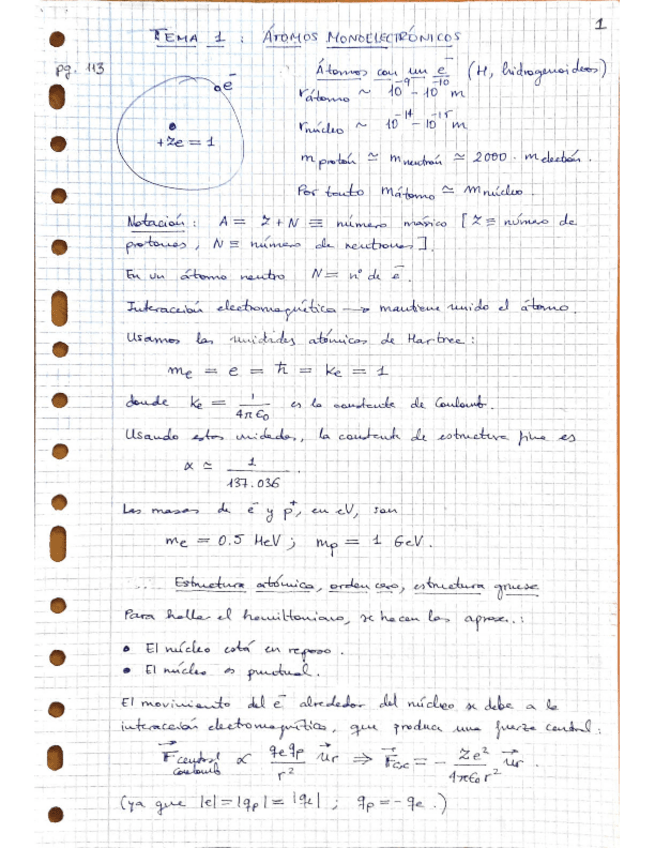 1
TEMA 1 : ÁTOMOS MONOELECTRÓNICOS
pg. 113
e⁻
+Ze = 1
Átomos con un e⁻ (H, hidrogenoideos)
r átomo ~ 10⁻⁹ - 10⁻¹⁰ m
r núcleo ~ 10⁻¹⁴ - 10⁻¹⁵ m
m protón ≃ m neutrón ≃ 2000 · m electrón.
Por tanto m átomo ≃ m núcleo.
Notación: A = Z + N ≡ número másico [Z ≡ número de
protones, N ≡ número de neutrones].
En un átomo neutro N = nº de e⁻.
Interacción electromagnética → mantiene unido el átomo.
Usamos las unidades atómicas de Hartree:
me = e = ħ = ke = 1
donde ke = 1/4πε₀ es la constante de Coulomb.
Usando estas unidades, la constante de estructura fina es
α ≃ 1/137.036.
Las masas de e⁻ y p⁺, en eV, son
me = 0.5 MeV; mp = 1 GeV.
Estructura atómica, orden cero, estructura gruesa
Para hallar el hamiltoniano, se hacen las aprox.:
• El núcleo está en reposo.
• El núcleo es puntual.
El movimiento del e⁻ alrededor del núcleo se debe a la
interacción electromagnética, que produce una fuerza central:
F⃗ central coulomb ∝ qe qp / r² u⃗r ⇒ F⃗cc = - Ze² / 4πε₀r² u⃗r.
(ya que |e| = |qp| = |qe| ; qp = - qe.)